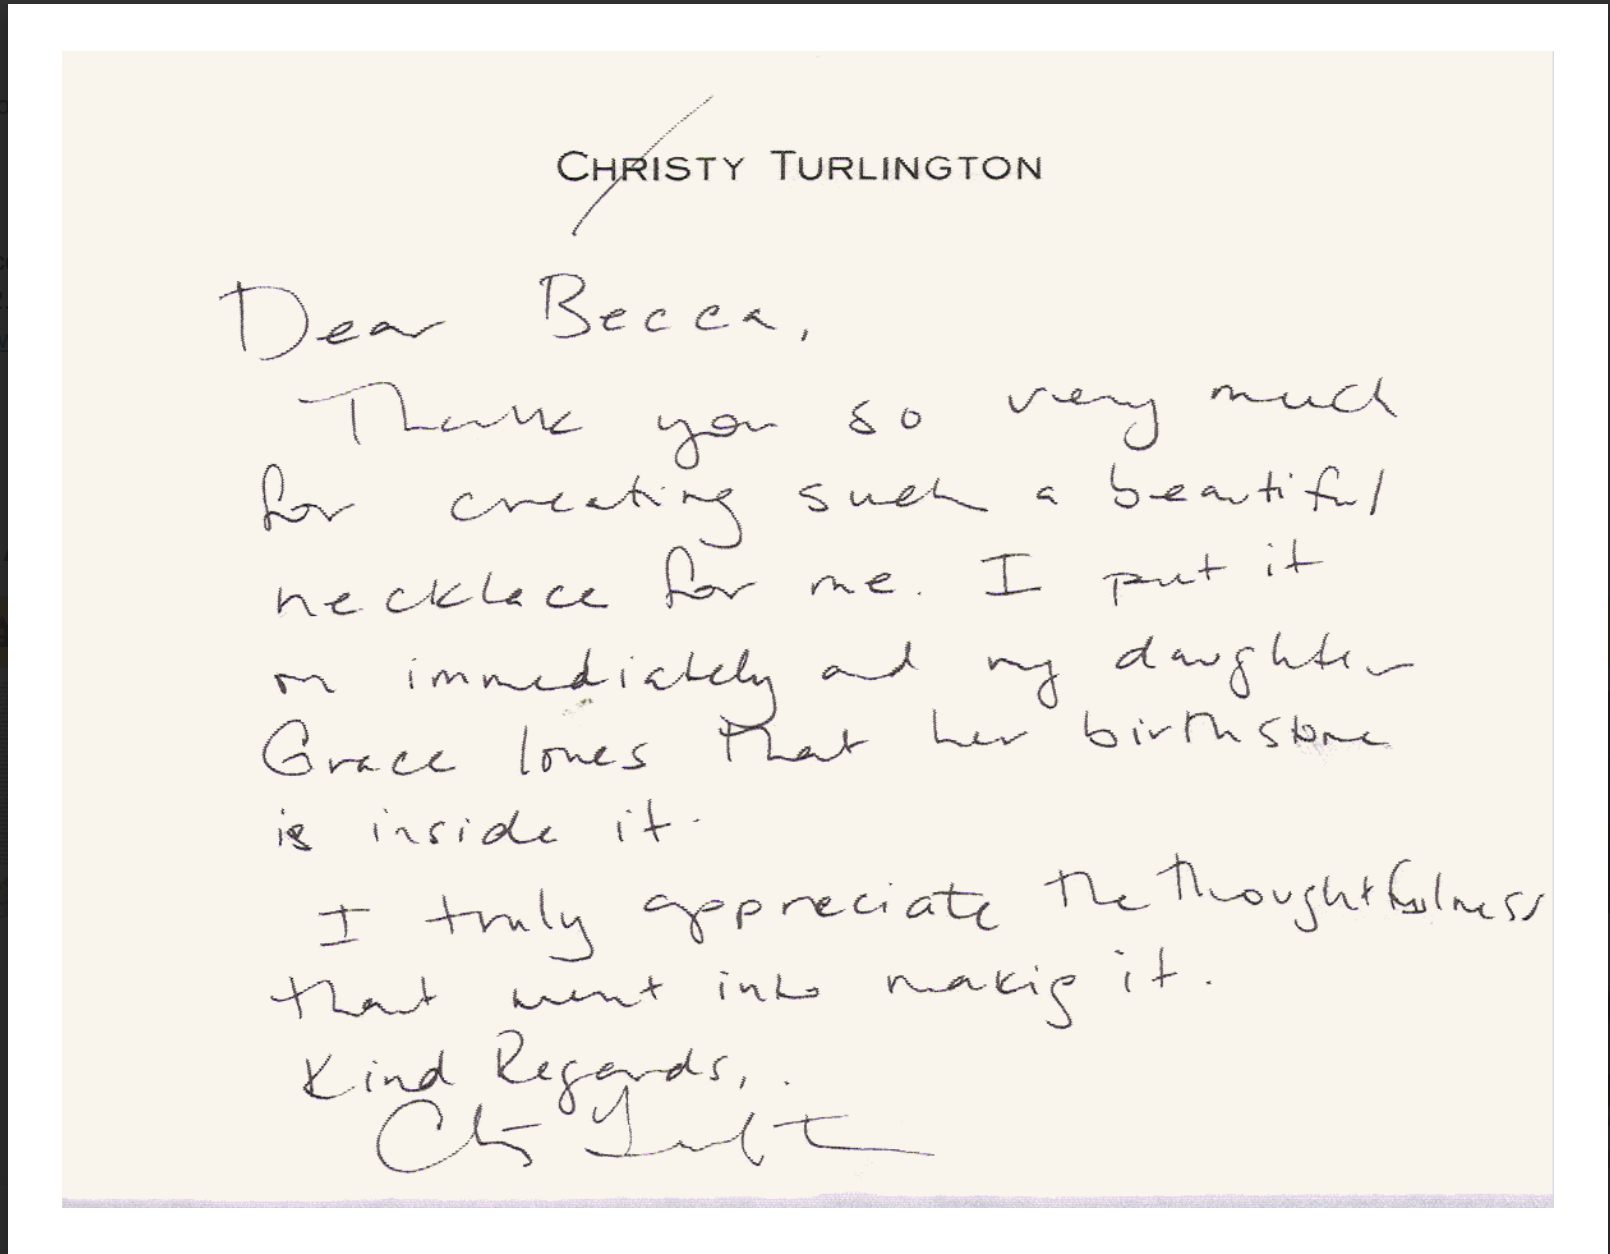 CHRISTY TURLINGTON
Dear Becca,
Thank you so very much
for creating such a beautiful
necklace for me. I put it
on immediately and my daughter
Grace loves that her birthstone
is inside it.
I truly appreciate the thoughtfulness
that went into makig it.
Kind Regards,
Christy Turlington